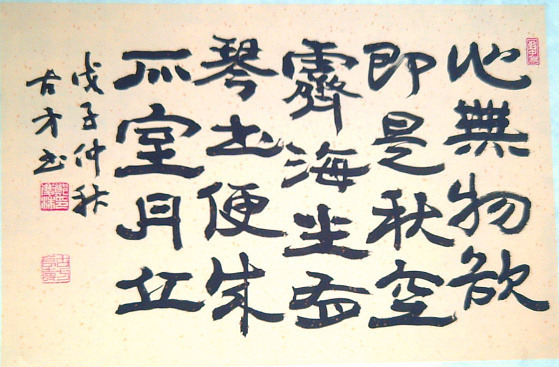 心無物欲
即是秋空
霽海坐有
琴書便成
石室丹丘
戊子仲秋
古方書